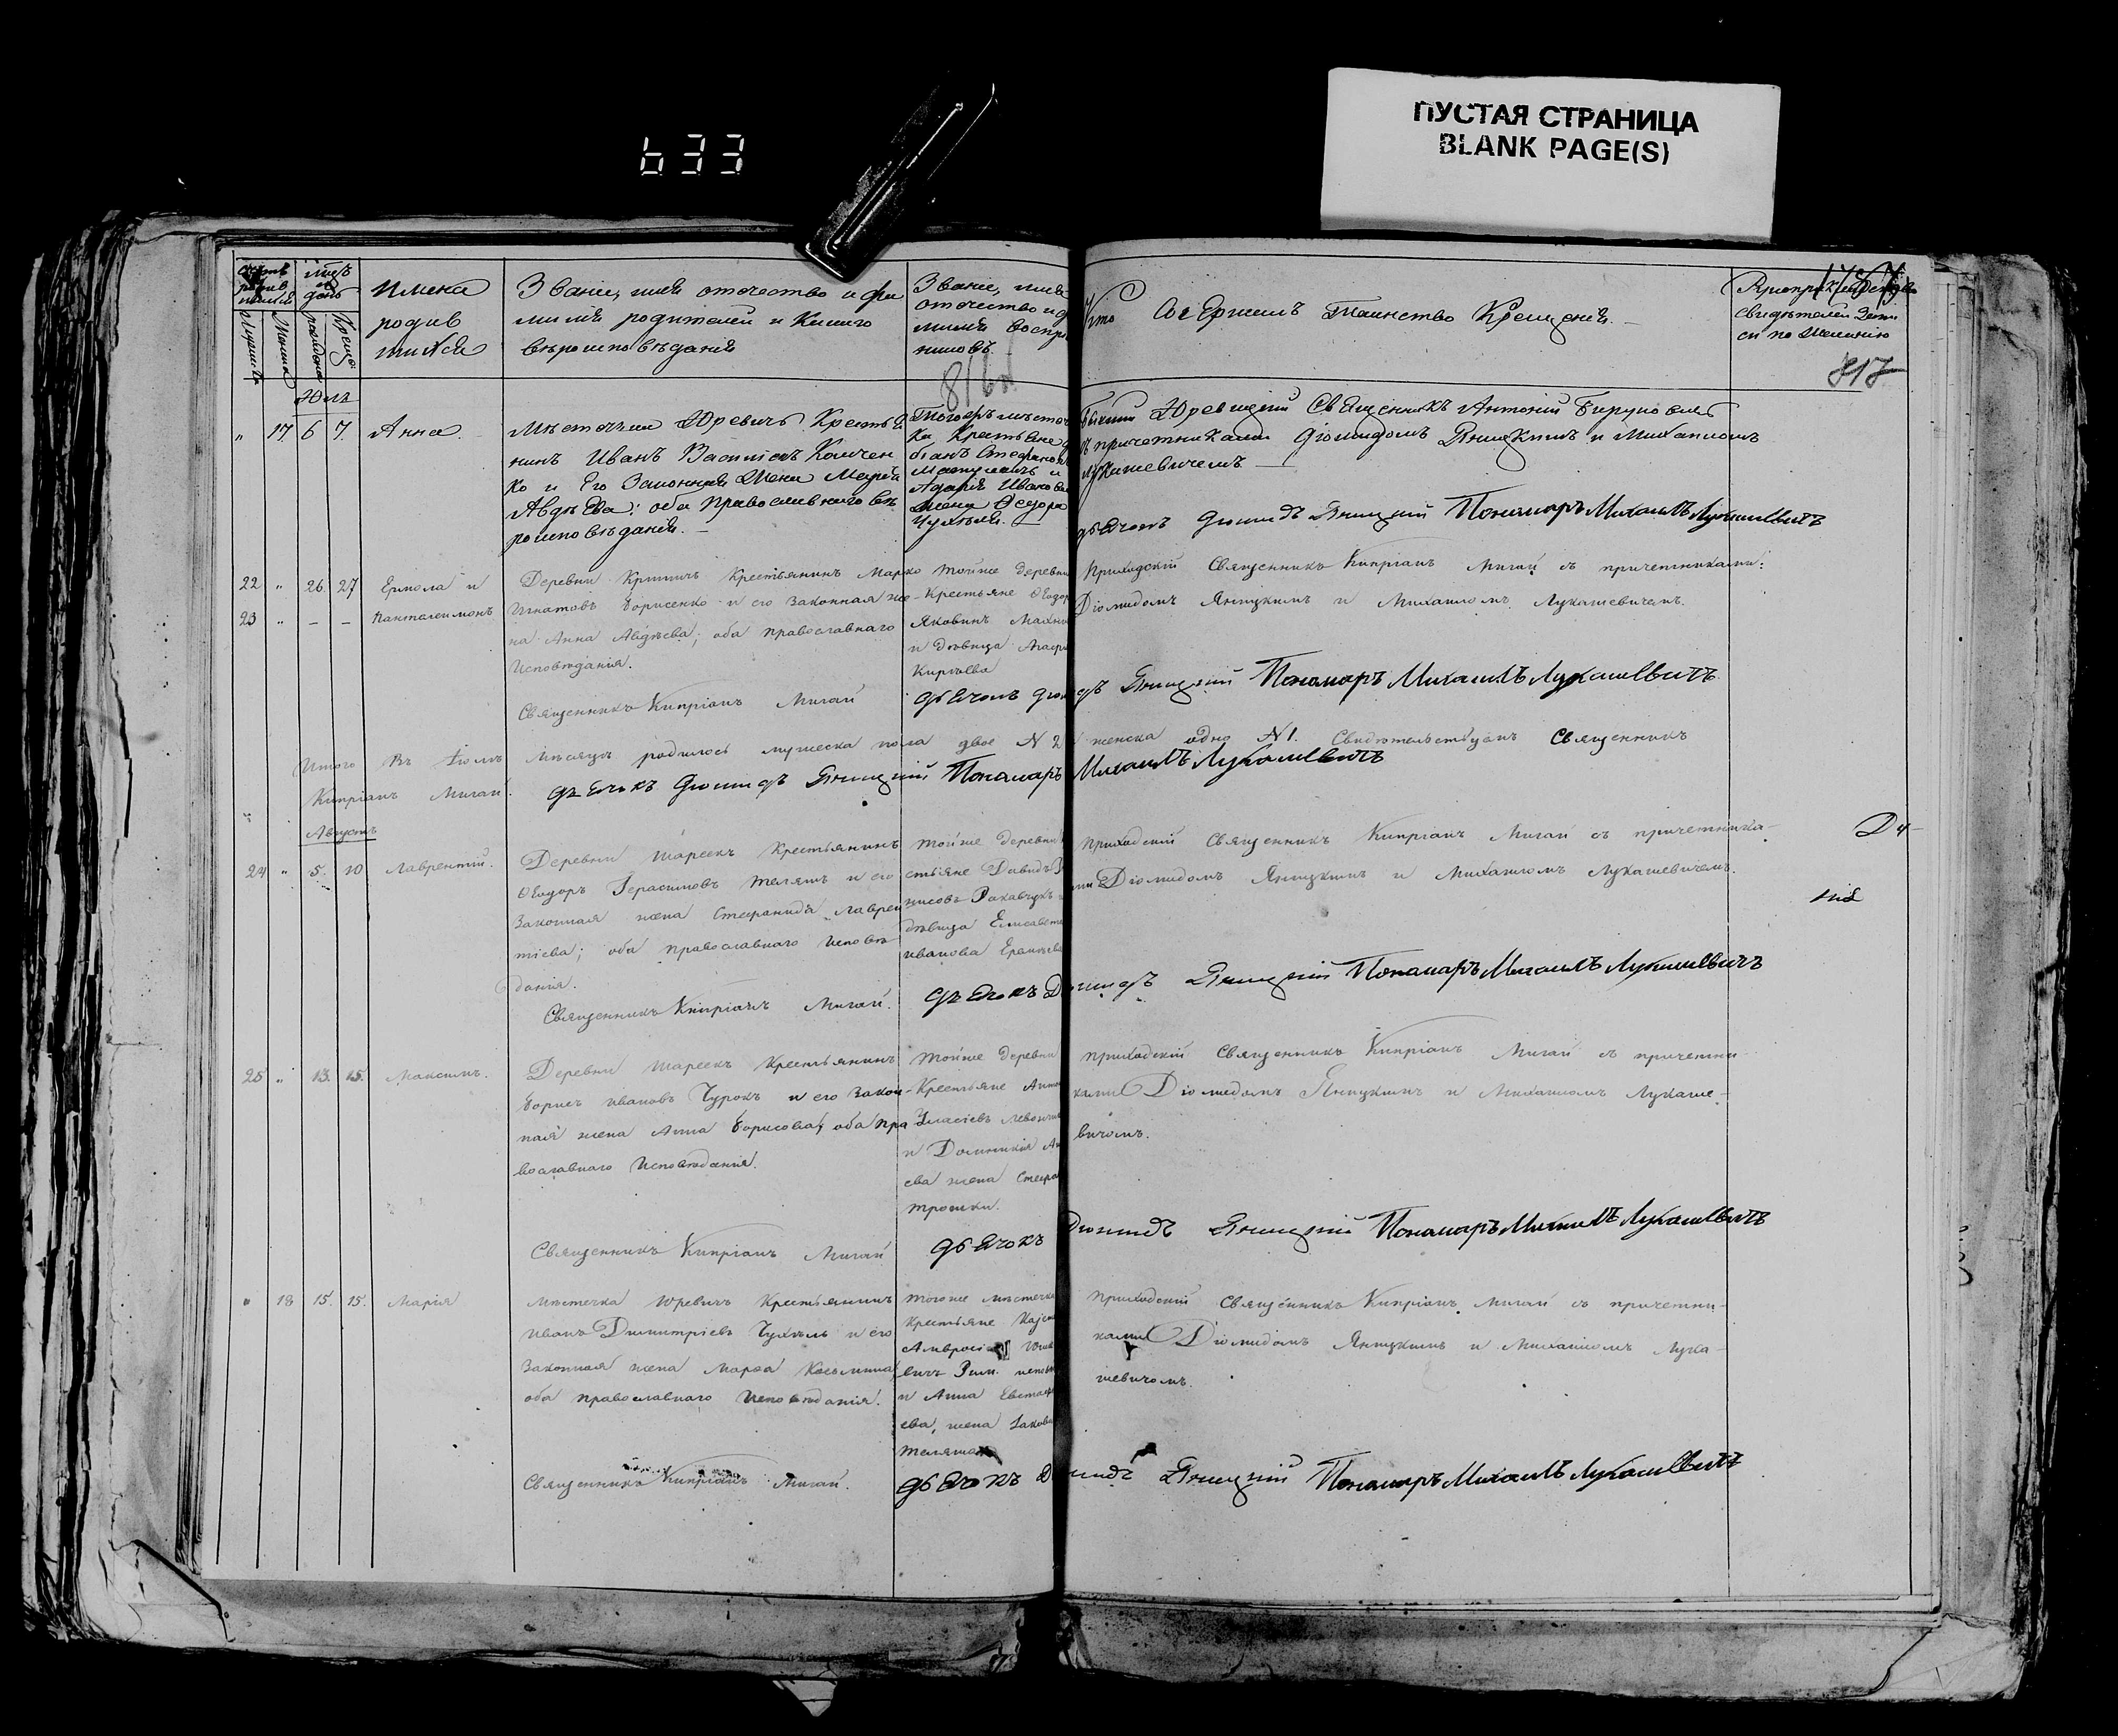 633
ПУСТАЯ СТРАНИЦА
BLANK PAGE(S)
Имена
родив
шихся
Званіе, имя отечество и фа
милія родителей и какого
вѣроисповѣданія
Званіе, имя
отечество и ф
милія воспрі
никовъ
Кто Совершилъ Таинство Крещенія.
свидѣтелей Запи
си по желанію
816
817
Юль
" 17 6 7 Анна.
Мѣстечка Юревичъ Крестья
нинъ Иванъ
ко и Его Законная Жена Марѳа
Авдѣева; оба православнаго вѣ
роисповѣданія.
Тогожъ мѣсте
ка Крестьяне
Иванов
жена Ѳедора
Чухлѣя.
Бывшій Юревицкій Священникъ Антоній
съ причетниками Діомидомъ Яницкимъ и Михаиломъ
Лукашевичемъ.
дьячокъ Діомидъ Яницкій Пономарь Михаилъ Лукашевичъ
22 " 26. 27 Ермола и
23 " – – Панталеимонъ
Деревни Кришичъ Крестьянинъ Марко
Игнатовъ Борисенко и его законная же-
на Анна Авдѣева; оба православнаго
Исповѣданія.
тойже деревни
Крестьяне Ѳеодор
Яковинъ Махн
и дѣвица Агаф
Киріева
Приходскій Священникъ Кипріанъ Мигай съ причетниками:
Діомидомъ Яницкимъ и Михаиломъ Лукашевичемъ.
Священникъ Кипріанъ Мигай дьячокъ Діомидъ Яницкій Пономарь Михаилъ Лукашевичъ
Итого въ Іюлѣ Мѣсяцѣ родилось мужеска пола двое N 2 женска одно N 1. Свидѣтельствуемъ Священникъ
Кипріанъ Мигай. дьячокъ Діомидъ Яницкій Пономарь Михаилъ Лукашевичъ
Августъ
24 " 5. 10 Лаврентій.
Деревни Шареекъ Крестьянинъ
Ѳеодоръ Герасимовъ Телятъ и его
законная жена Стефанида Лаврен
тіева; оба православнаго Исповѣ
данія.
тойже деревни
стьяне Давидъ
нисовъ Ракавчукъ
дѣвица Елисавета
Иванова
приходскій Священникъ Кипріанъ Мигай съ причетника-
ми Діомидомъ Яницкимъ и Михаиломъ Лукашевичемъ.
Священникъ Кипріанъ Мигай. дьячокъ Діомидъ Яницкій Пономарь Михаилъ Лукашевичъ
25 " 13. 15. Максимъ.
Деревни Шареекъ Крестьянинъ
Борисъ Ивановъ Чурокъ и его закон-
ная жена Анна Борисова; оба пра
вославнаго Исповѣданія.
тойже деревни
Крестьяне Анто
Власіевъ
и Домникія Ан
ева жена Стефа
Трошки.
приходскій Священникъ Кипріанъ Мигай съ причетни-
ками Діомидомъ Яницкимъ и Михаиломъ Лукаше-
вичомъ.
Священникъ Кипріанъ Мигай дьячокъ Діомидъ Яницкій Пономарь Михаилъ Лукашевичъ
" 18 15. 15. Марія
мѣстечка Юревичъ Крестьянинъ
Иванъ Димитріевъ Чухлѣь и его
законная жена Марѳа Косьмина
оба православнаго Исповѣданія.
тогоже мѣстечка
Крестьяне
Амвросі
вичъ Рим. испов
и Анна Евстаф
ева, жена Іакова
Телятa
приходскій Священникъ Кипріанъ Мигай съ причетни-
ками Діомидомъ Яницкимъ и Михаиломъ Лука-
шевичомъ.
Священникъ Кипріанъ Мигай. дьячокъ Діомидъ Яницкій Пономарь Михаилъ Лукашевичъ